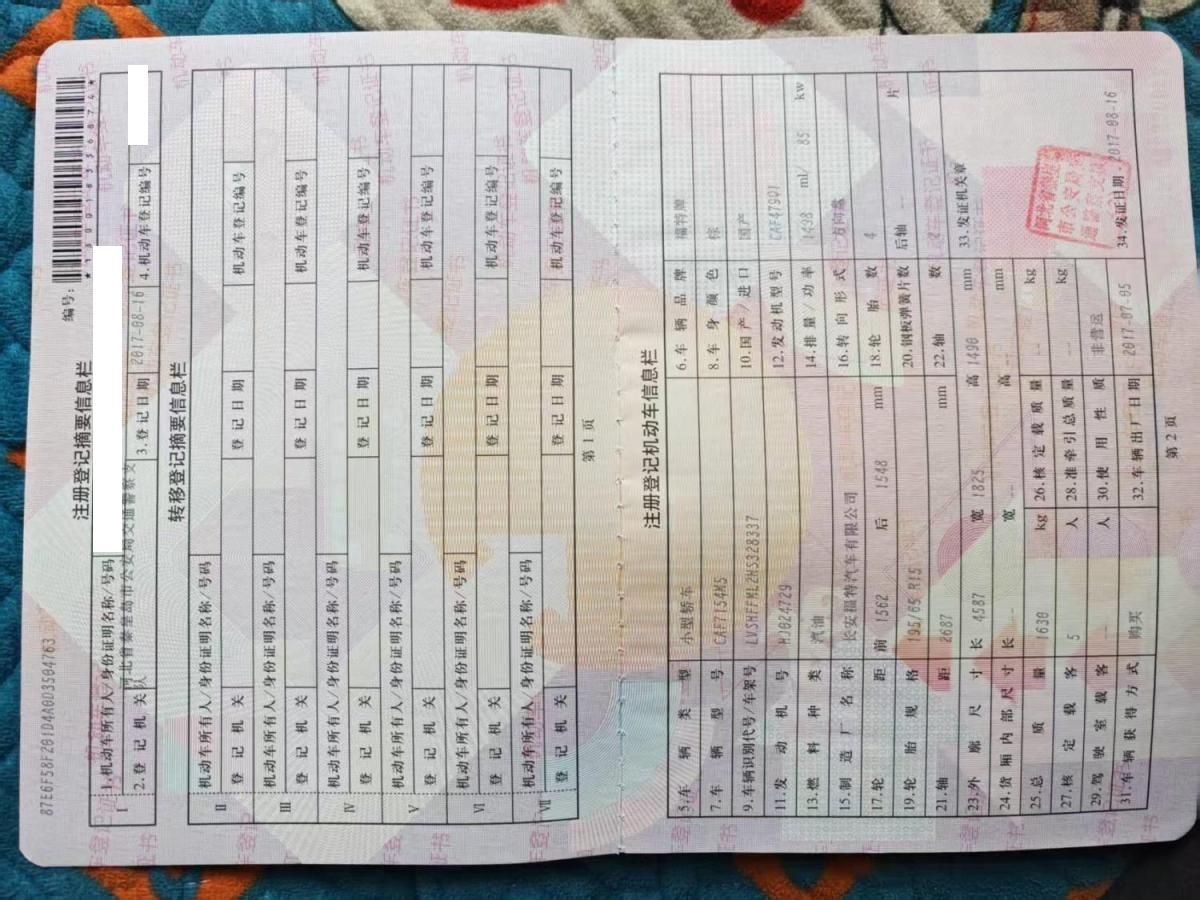 87E6F58F201D4A0D3504763
编号:
注册登记摘要信息栏
Ⅰ 1.机动车所有人/身份证明名称/号码
2.登记机关 河北省秦皇岛市公安局交通警察支队 3.登记日期 2017-08-16 4.机动车登记编号
转移登记摘要信息栏
Ⅱ 机动车所有人/身份证明名称/号码
登记机关 登记日期 机动车登记编号
Ⅲ 机动车所有人/身份证明名称/号码
登记机关 登记日期 机动车登记编号
Ⅳ 机动车所有人/身份证明名称/号码
登记机关 登记日期 机动车登记编号
Ⅴ 机动车所有人/身份证明名称/号码
登记机关 登记日期 机动车登记编号
Ⅵ 机动车所有人/身份证明名称/号码
登记机关 登记日期 机动车登记编号
Ⅶ 机动车所有人/身份证明名称/号码
登记机关 登记日期 机动车登记编号
第 1 页
注册登记机动车信息栏
5.车辆类型 小型轿车 6.车辆品牌 福特牌
7.车辆型号 CAF7154M5 8.车身颜色 棕
9.车辆识别代号/车架号 LVSHFFML2HS328337 10.国产/进口 国产
11.发动机号 HJ024729 12.发动机型号 CAF479Q1
13.燃料种类 汽油 14.排量/功率 1498 ml/ 85 kw
15.制造厂名称 长安福特汽车有限公司 16.转向形式 方向盘
17.轮距 前 1562 后 1548 mm 18.轮胎数 4
19.轮胎规格 195/65 R15 20.钢板弹簧片数 后轴 -- 片
21.轴距 2687 mm 22.轴数
23.外廓尺寸 长 4587 宽 1825 高 1490 mm 33.发证机关章
24.货厢内部尺寸 长 -- 宽 -- 高 -- mm
25.总质量 1630 kg 26.核定载质量 -- kg
27.核定载客 5 人 28.准牵引总质量 -- kg
29.驾驶室载客 -- 人 30.使用性质 非营运
31.车辆获得方式 购买 32.车辆出厂日期 2017-07-05 34.发证日期 2017-08-16
第 2 页